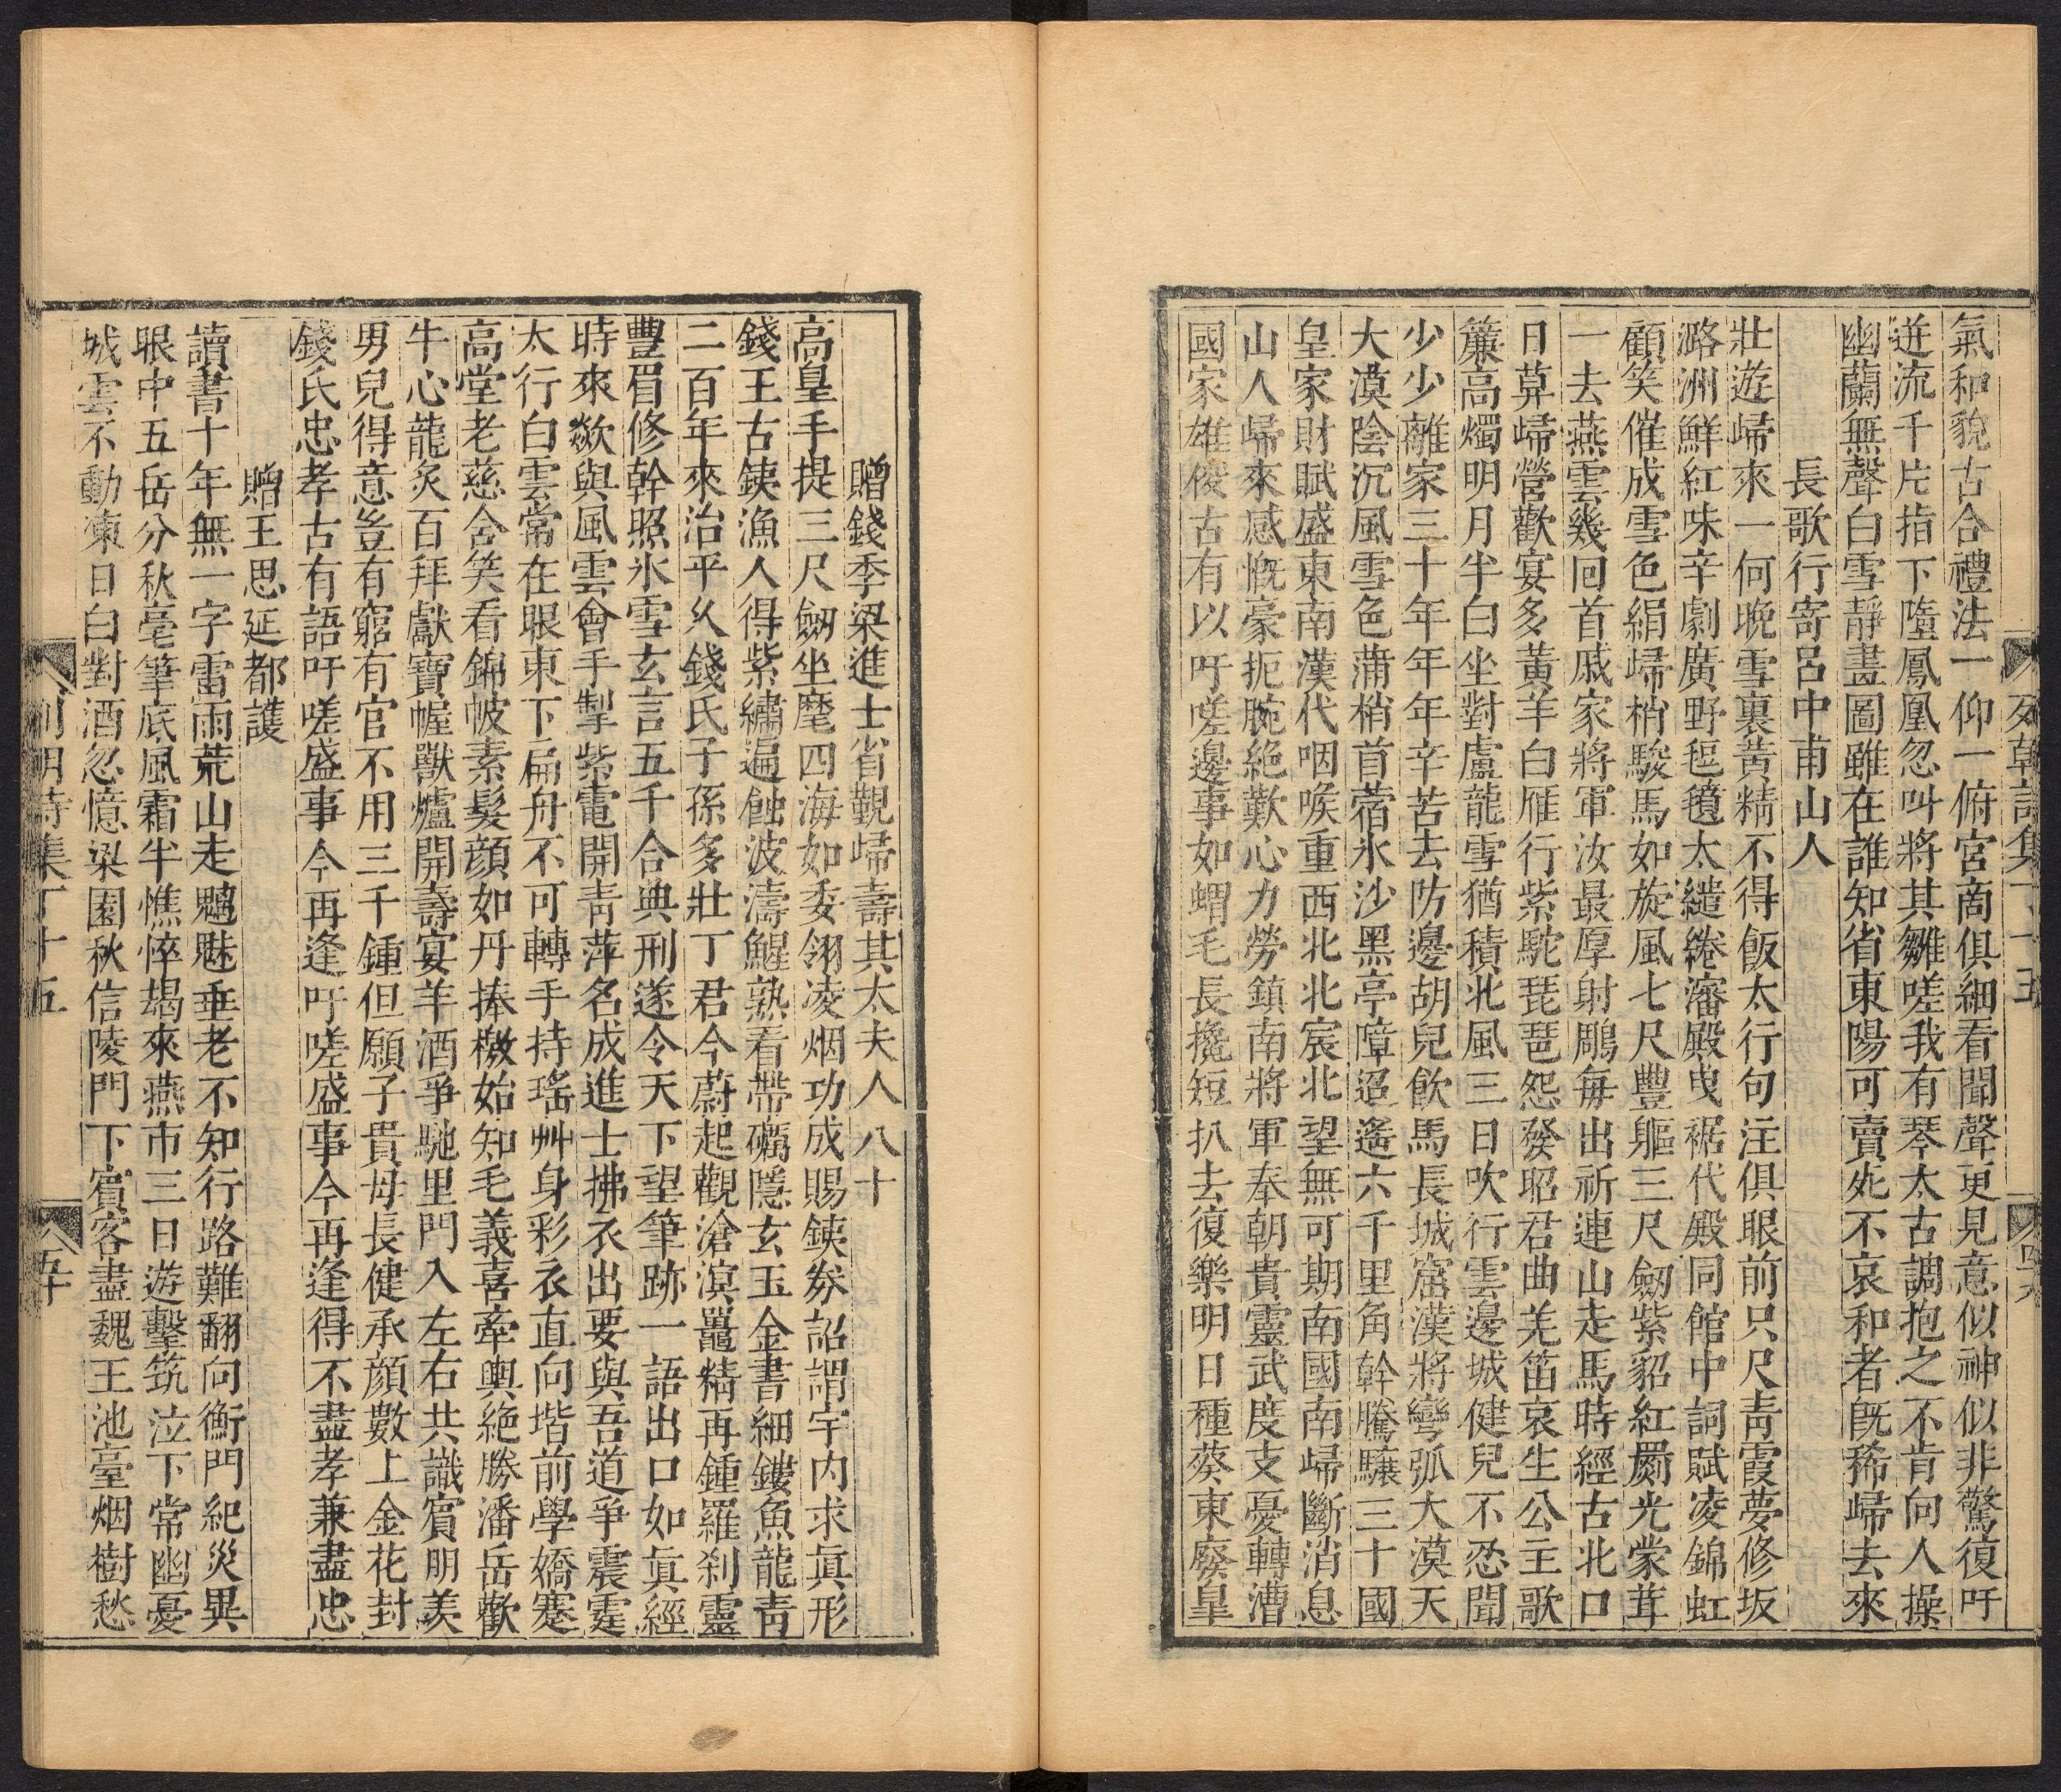 氣和貌古合禮法一仰一俯宮商俱細看聞聲更見意似神似非驚復吁
迸流千片指下墮鳳凰忽叫將其雛嗟我有琴太古調抱之不肯向人操
幽蘭無聲白雪靜畫圖雖在誰知省東陽可賣死不哀和者旣稀歸去來
長歌行寄呂中甫山人
壯遊歸來一何晚雪裏黃精不得飯太行句注俱眼前只尺靑霞夢修坂
潞洲鮮紅味辛劇廣野毡氊太繾綣瀋殿曳裾代殿同館中詞賦凌錦虹
顧笑催成雪色絹歸梢駿馬如旋風七尺豐軀三尺劒紫貂紅罽光蒙茸
一去燕雲幾回首戚家將軍汝最厚射鵰每出祈連山走馬時經古北口
日草歸營歡宴多黃羊白雁行紫駝琵琶怨發昭君曲羌笛哀生公主歌
簾高燭明月半白坐對盧龍雪猶積北風三日吹行雲邊城健兒不忍聞
少少離家三十年年年辛苦去防邊胡兒飮馬長城窟漢將彎弧大漠天
大漠陰沉風雪色蒲梢首蓿氷沙黑亭障迢遙六千里角幹騰驤三十國
皇家財賦盛東南漢代咽喉重西北北宸北望無可期南國南歸斷消息
山人歸來感慨豪扼腕絕歎心力勞鎮南將軍奉朝貴靈武度支憂轉漕
國家雄俊古有以吁嗟邊事如蝟毛長攙短扒去復樂明日種葵東廢皇
列朝詩集丁十五
贈錢季梁進士省覲歸壽其太夫人八十
高皇手提三尺劒坐麾四海如委翎凌烟功成賜鐵券詔謂宇內求眞形
錢王古鐵漁人得紫繡遍蝕波濤鯹熟看帶礪隱玄玉金書細鏤魚龍靑
二百年來治平久錢氏子孫多壯丁君今蔚起觀滄溟鼍精再鍾羅刹靈
豐眉修幹照氷雪玄言五千合典刑遂令天下望筆跡一語出口如眞經
時來歘與風雲會手掣紫電開靑萍名成進士拂衣出要與吾道爭震霆
太行白雲常在眼東下扁舟不可轉手持瑤艸身彩衣直向堦前學嬌蹇
高堂老慈含笑看錦帔素髮顏如丹捧檄始知毛義喜牽輿絕勝潘岳歡
牛心龍炙百拜獻寶幄獸爐開壽宴羊酒爭馳里門入左右共識賓朋羨
男兒得意豈有窮有官不用三千鍾但願子貴母長健承顏數上金花封
錢氏忠孝古有語吁嗟盛事今再逢吁嗟盛事今再逢得不盡孝兼盡忠
贈王思延都護
讀書十年無一字雷雨荒山走魑魅垂老不知行路難翻向衡門紀災異
眼中五岳分秋毫筆底風霜半憔悴朅來燕市三日遊擊筑泣下常幽憂
城雲不動凍日白對酒忽憶梁園秋信陵門下賓客盡魏王池臺烟樹愁
列朝詩集丁十五